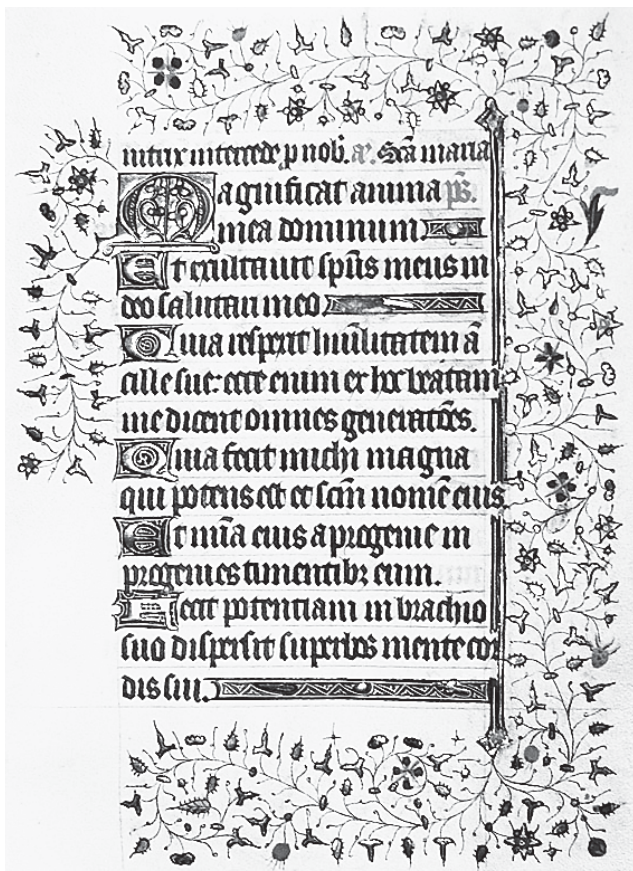 nitrix intercede p nob. ae. Scā maria
Magnificat anima ps.
mea dominum.
Et exultauit spūs meus in
deo salutari meo.
Quia respexit humilitatem ā
cille sue: ecce enim ex hoc beatam
me dicent omnes generatōes.
Quia fecit michi magna
qui potens est et scm̄ nomē eius
Et mīa eius a progenie in
progenies timentibȝ eum.
Fecit potentiam in brachio
suo dispersit superbos mente cor
dis sui.